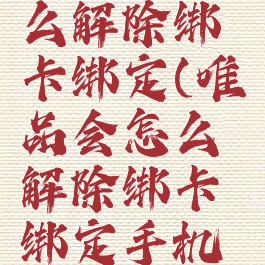 么解除绑
卡绑定(唯
品会怎么
解除绑卡
绑定手机